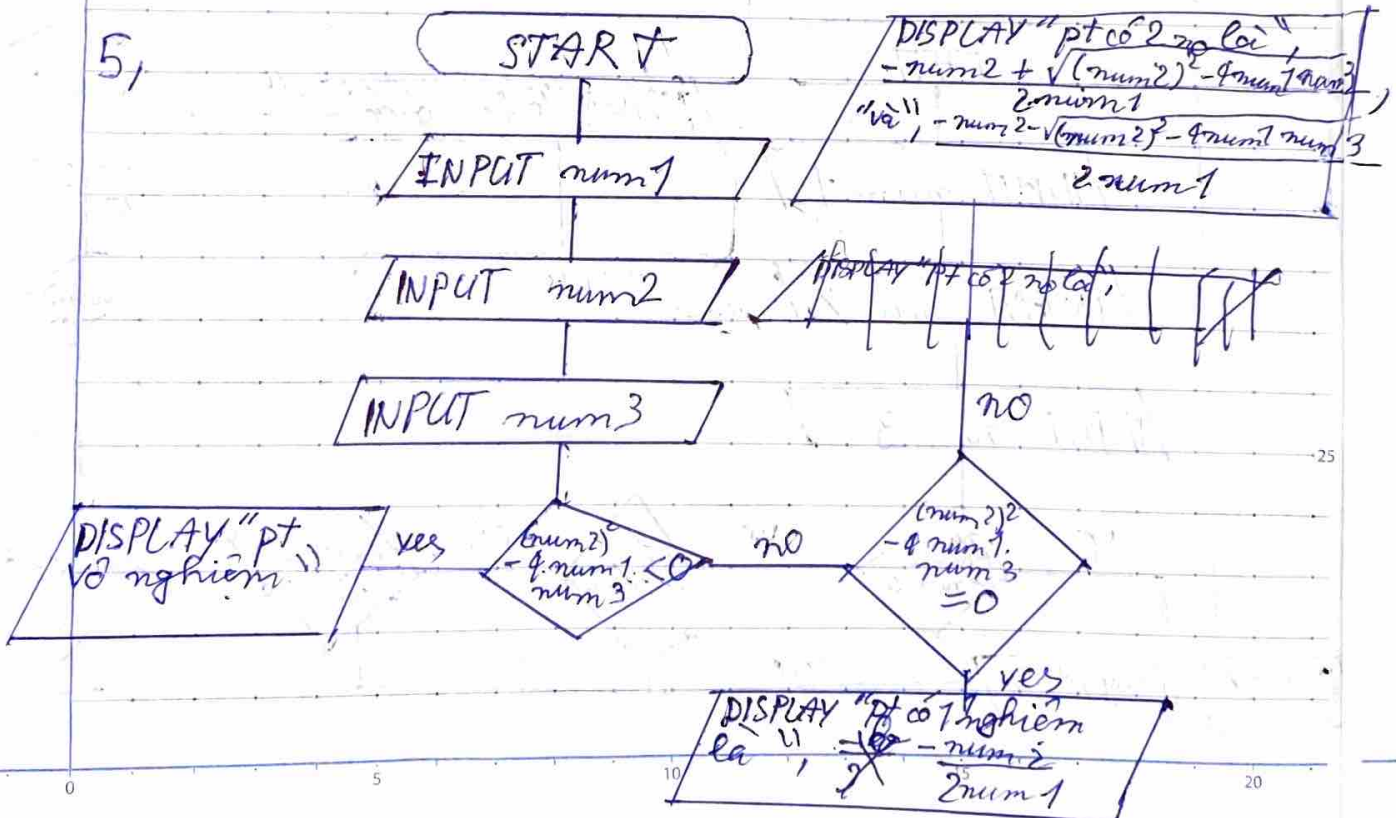 5,
START
INPUT num1
INPUT num2
INPUT num3
(num2)²
- 4.num1. <0
num3
yes
DISPLAY "pt
vô nghiệm"
no
(num2)²
- 4 num1.
num3
=0
yes
DISPLAY "pt có 1 nghiệm
là", -num2
2num1
no
DISPLAY "pt có 2 no là",
-num2 + √(num2)² - 4num1 num3,
2num1
"và", -num2 - √(num2)² - 4num1 num3
2num1
DISPLAY "pt có 2 no là",
25
0
5
10
15
20